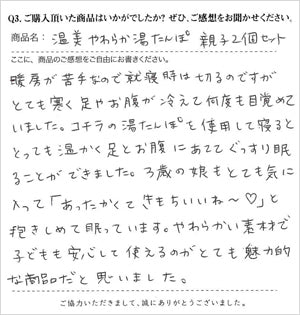 Q3.ご購入頂いた商品はいかがでしたか? ぜひ、ご感想をお聞かせください。
商品名: 温美 やわらか湯たんぽ 親子2個セット
ここに、商品のご感想をご自由にお書きください。
暖房が苦手なので就寝時は切るのですが
とても寒く足やお腹が冷えて何度も目覚めて
いました。コチラの湯たんぽを使用して寝ると
とっても温かく足とお腹にあててぐっすり眠
ることができました。3歳の娘もとても気に
入って「あったかくてきもちいいね〜♡」と
抱きしめて眠っています。やわらかい素材で
子どもも安心して使えるのがとても魅力的
な商品だと思いました。
ご協力いただきまして、誠にありがとうございました。